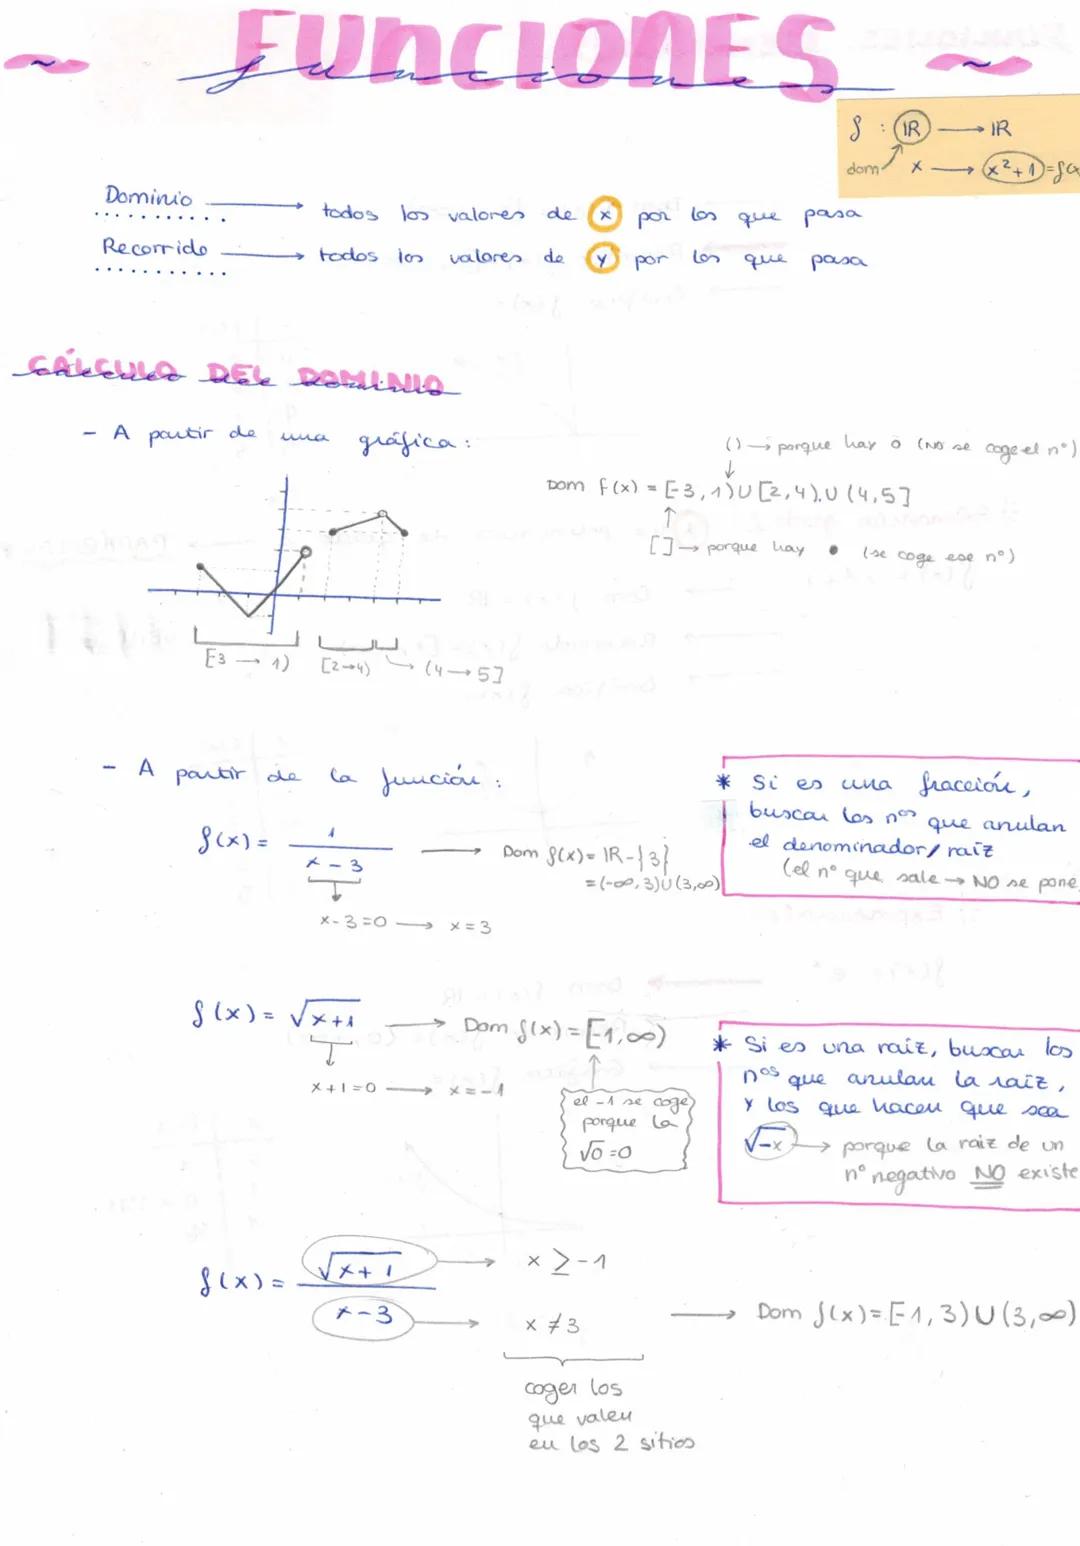 FUNCIONES
funciones
f : IR → IR
dom x → x²+1 = f(x
Dominio → todos los valores de x por los que pasa
Recorrido → todos los valores de y por los que pasa
CÁLCULO DEL DOMINIO
cálculo del dominio
- A partir de una gráfica:
() → porque hay o (NO se coge el nº)
Dom f(x) = [-3, 1) U [2, 4) U (4, 5]
[] → porque hay • (se coge ese nº)
[-3 → 1) [2→4) → (4→5]
- A partir de la función:
* Si es una fracción,
buscar los nos que anulan
el denominador/raíz
(el nº que sale → NO se pone
f(x) = 1 / x-3 → Dom f(x) = IR - {3}
= (-∞, 3) U (3, ∞)
x-3=0 → x=3
f(x) = √x+1 → Dom f(x) = [-1, ∞)
x+1=0 → x=-1
el -1 se coge
porque la
√0 = 0
* Si es una raíz, buscar los
nos que anulan la raíz,
y los que hacen que sea
√-x → porque la raíz de un
nº negativo NO existe
f(x) = √x+1 / x-3
x ≥ -1
x ≠ 3
→ Dom f(x) = [-1, 3) U (3, ∞)
coger los
que valen
en los 2 sitios